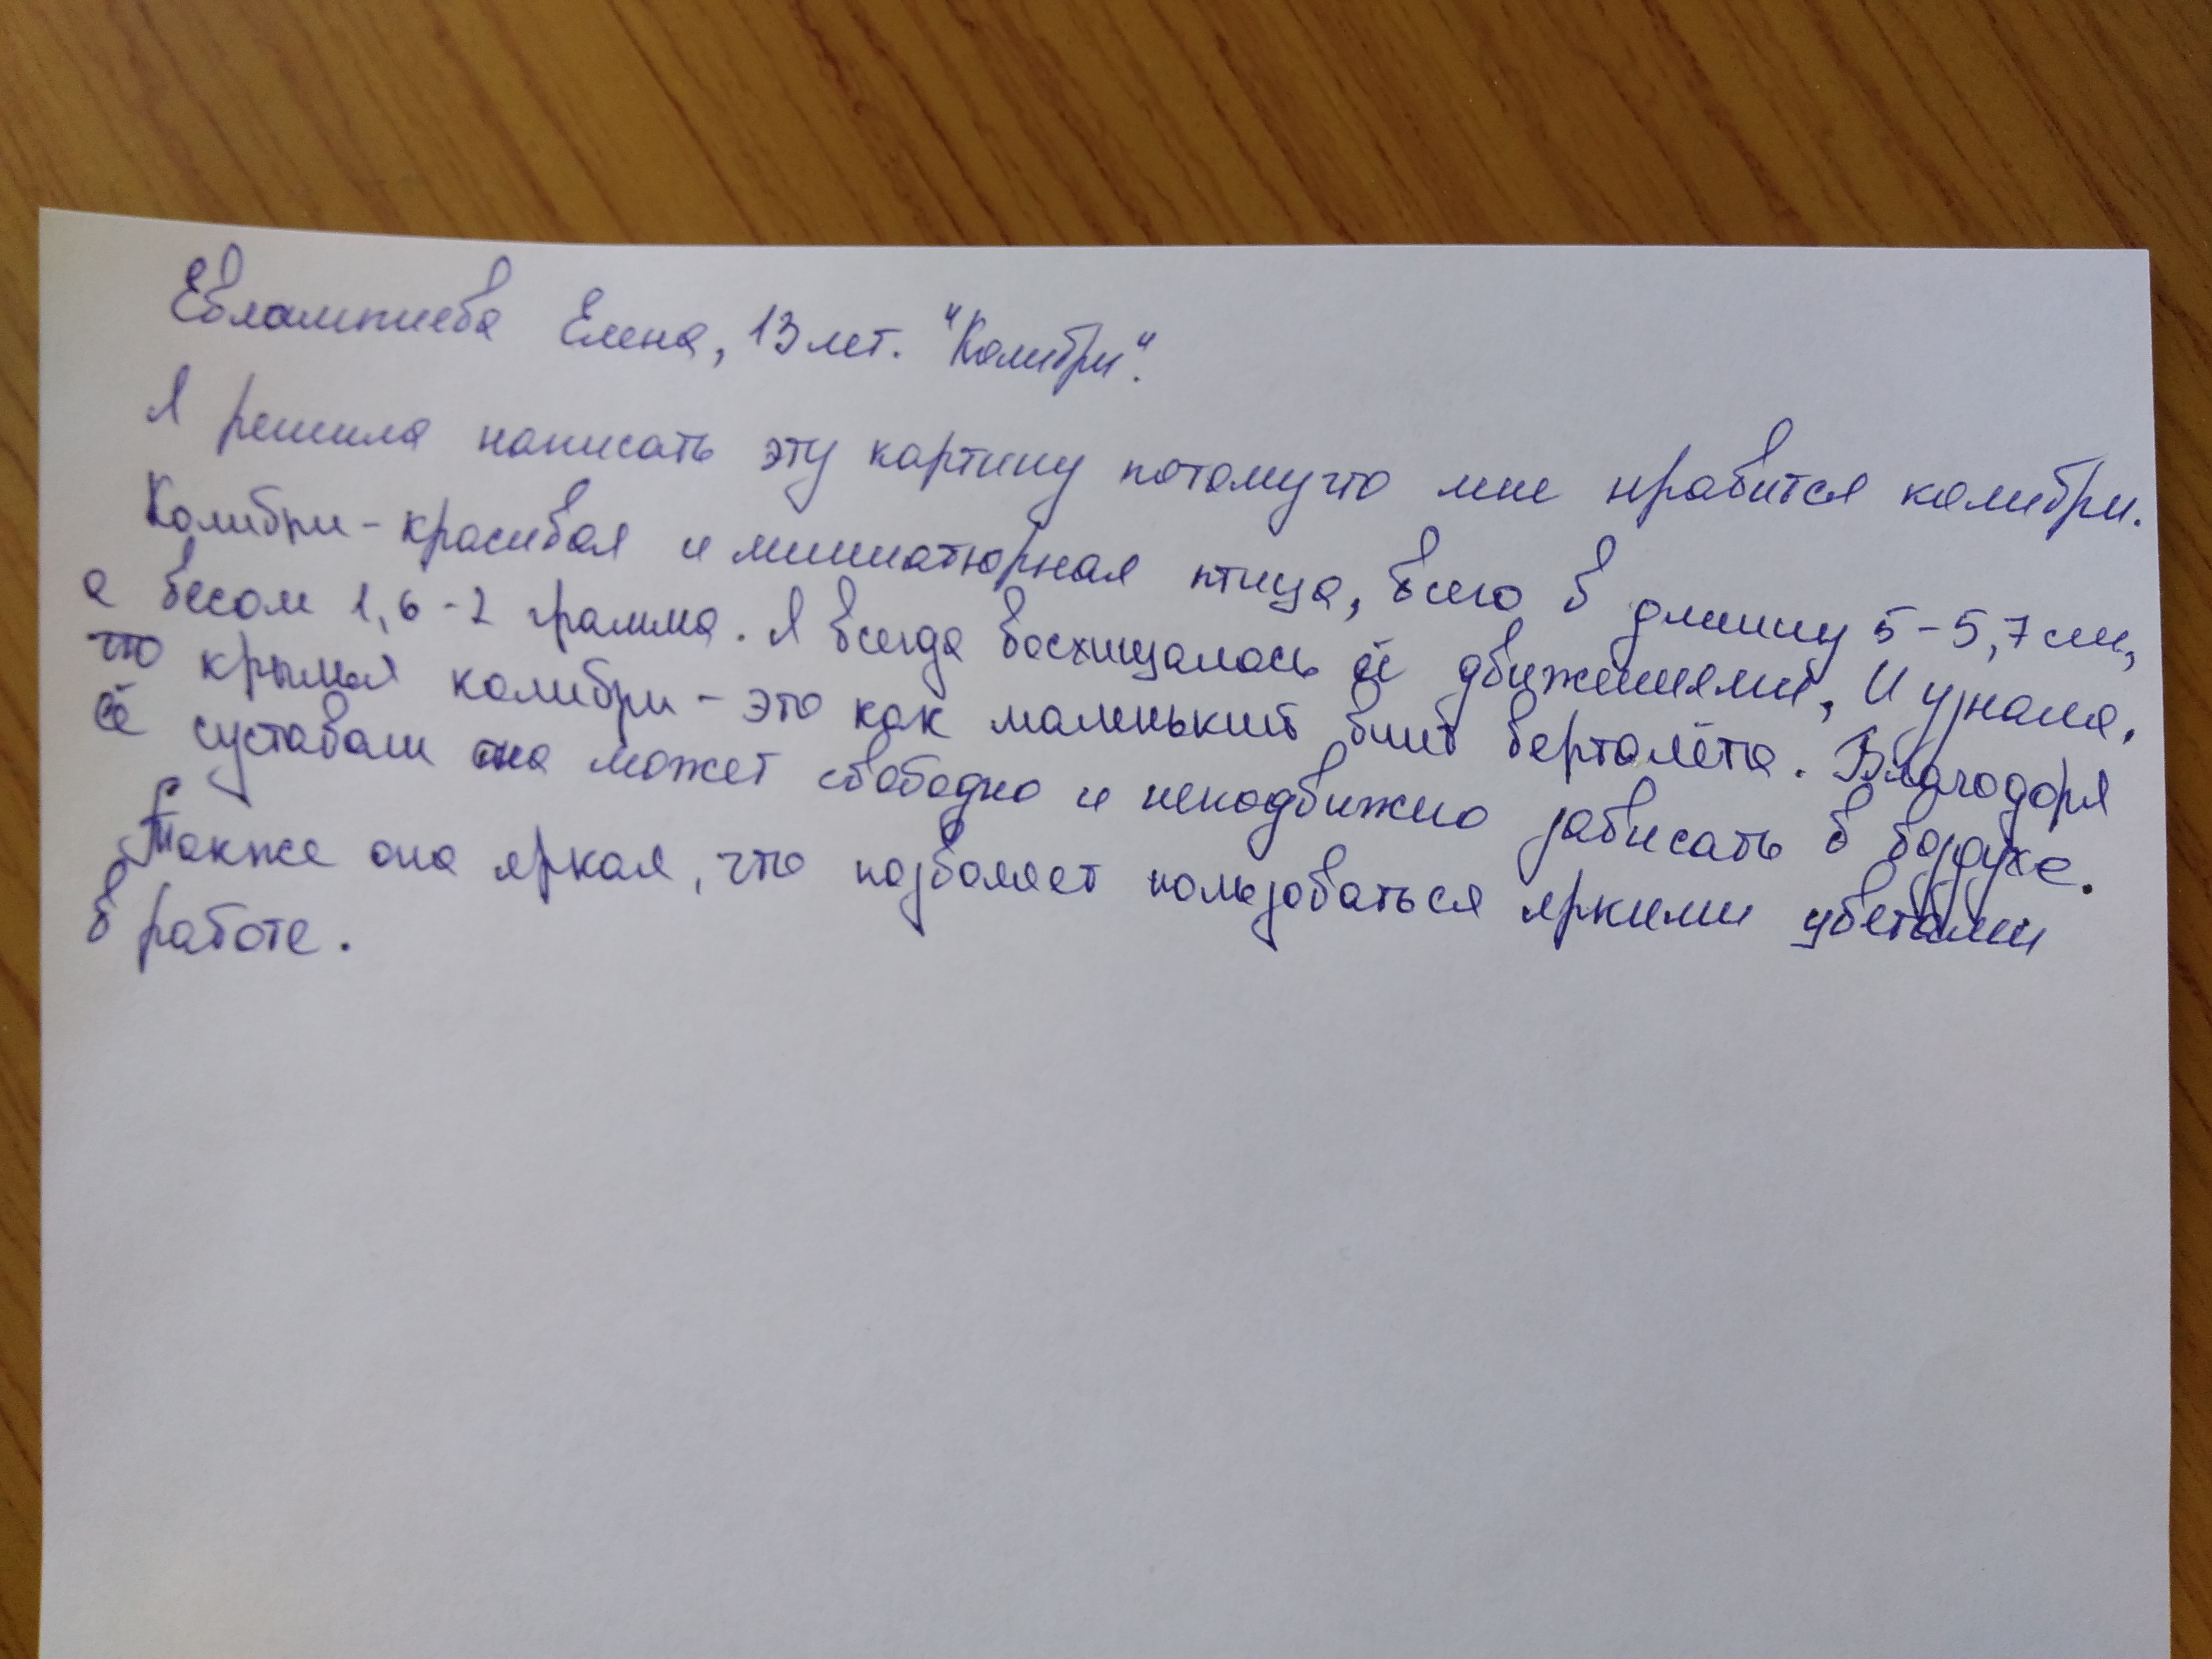 Евлампиева Елена, 13 лет. "Колибри".
Я решила написать эту картину потомучто мне нравится колибри.
Колибри - красивая и миниатюрная птица, всего в длину 5-5,7 см,
а весом 1,6-2 грамма. Я всегда восхищалась её движениями, И узнала,
что крылья колибри - это как маленький винт верталёта. Благодоря
её суставам она может свободно и неподвижно зависать в воздухе.
Также она яркая, что позволяет пользоваться яркими цветами
в работе.